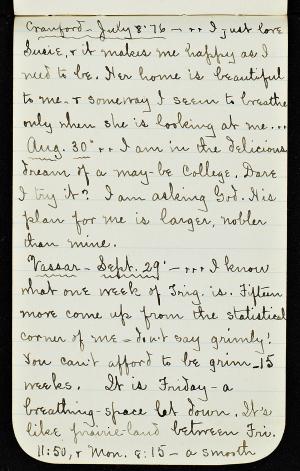 Cranford - July 8 '76 - ... I just love
Susie, & it makes me happy as I
need to be. Her home is beautiful
to me. & someway I seem to breathe
only when she is looking at me...
Aug. 30 ... I am in the delicious
dream of a may-be College. Dare
I try it? I am asking God. His
plan for me is larger, nobler
than mine.
Vassar - Sept. 29 - ... I know
what one week of Trig. is. Fifteen
more come up from the statistical
corner of me - don't say grimly!
You can't afford to be grim 15
weeks. It is Friday - a
breathing-space let down. It's
like prairie-land between Fri.
11:50, & Mon. 8:15 - a smooth